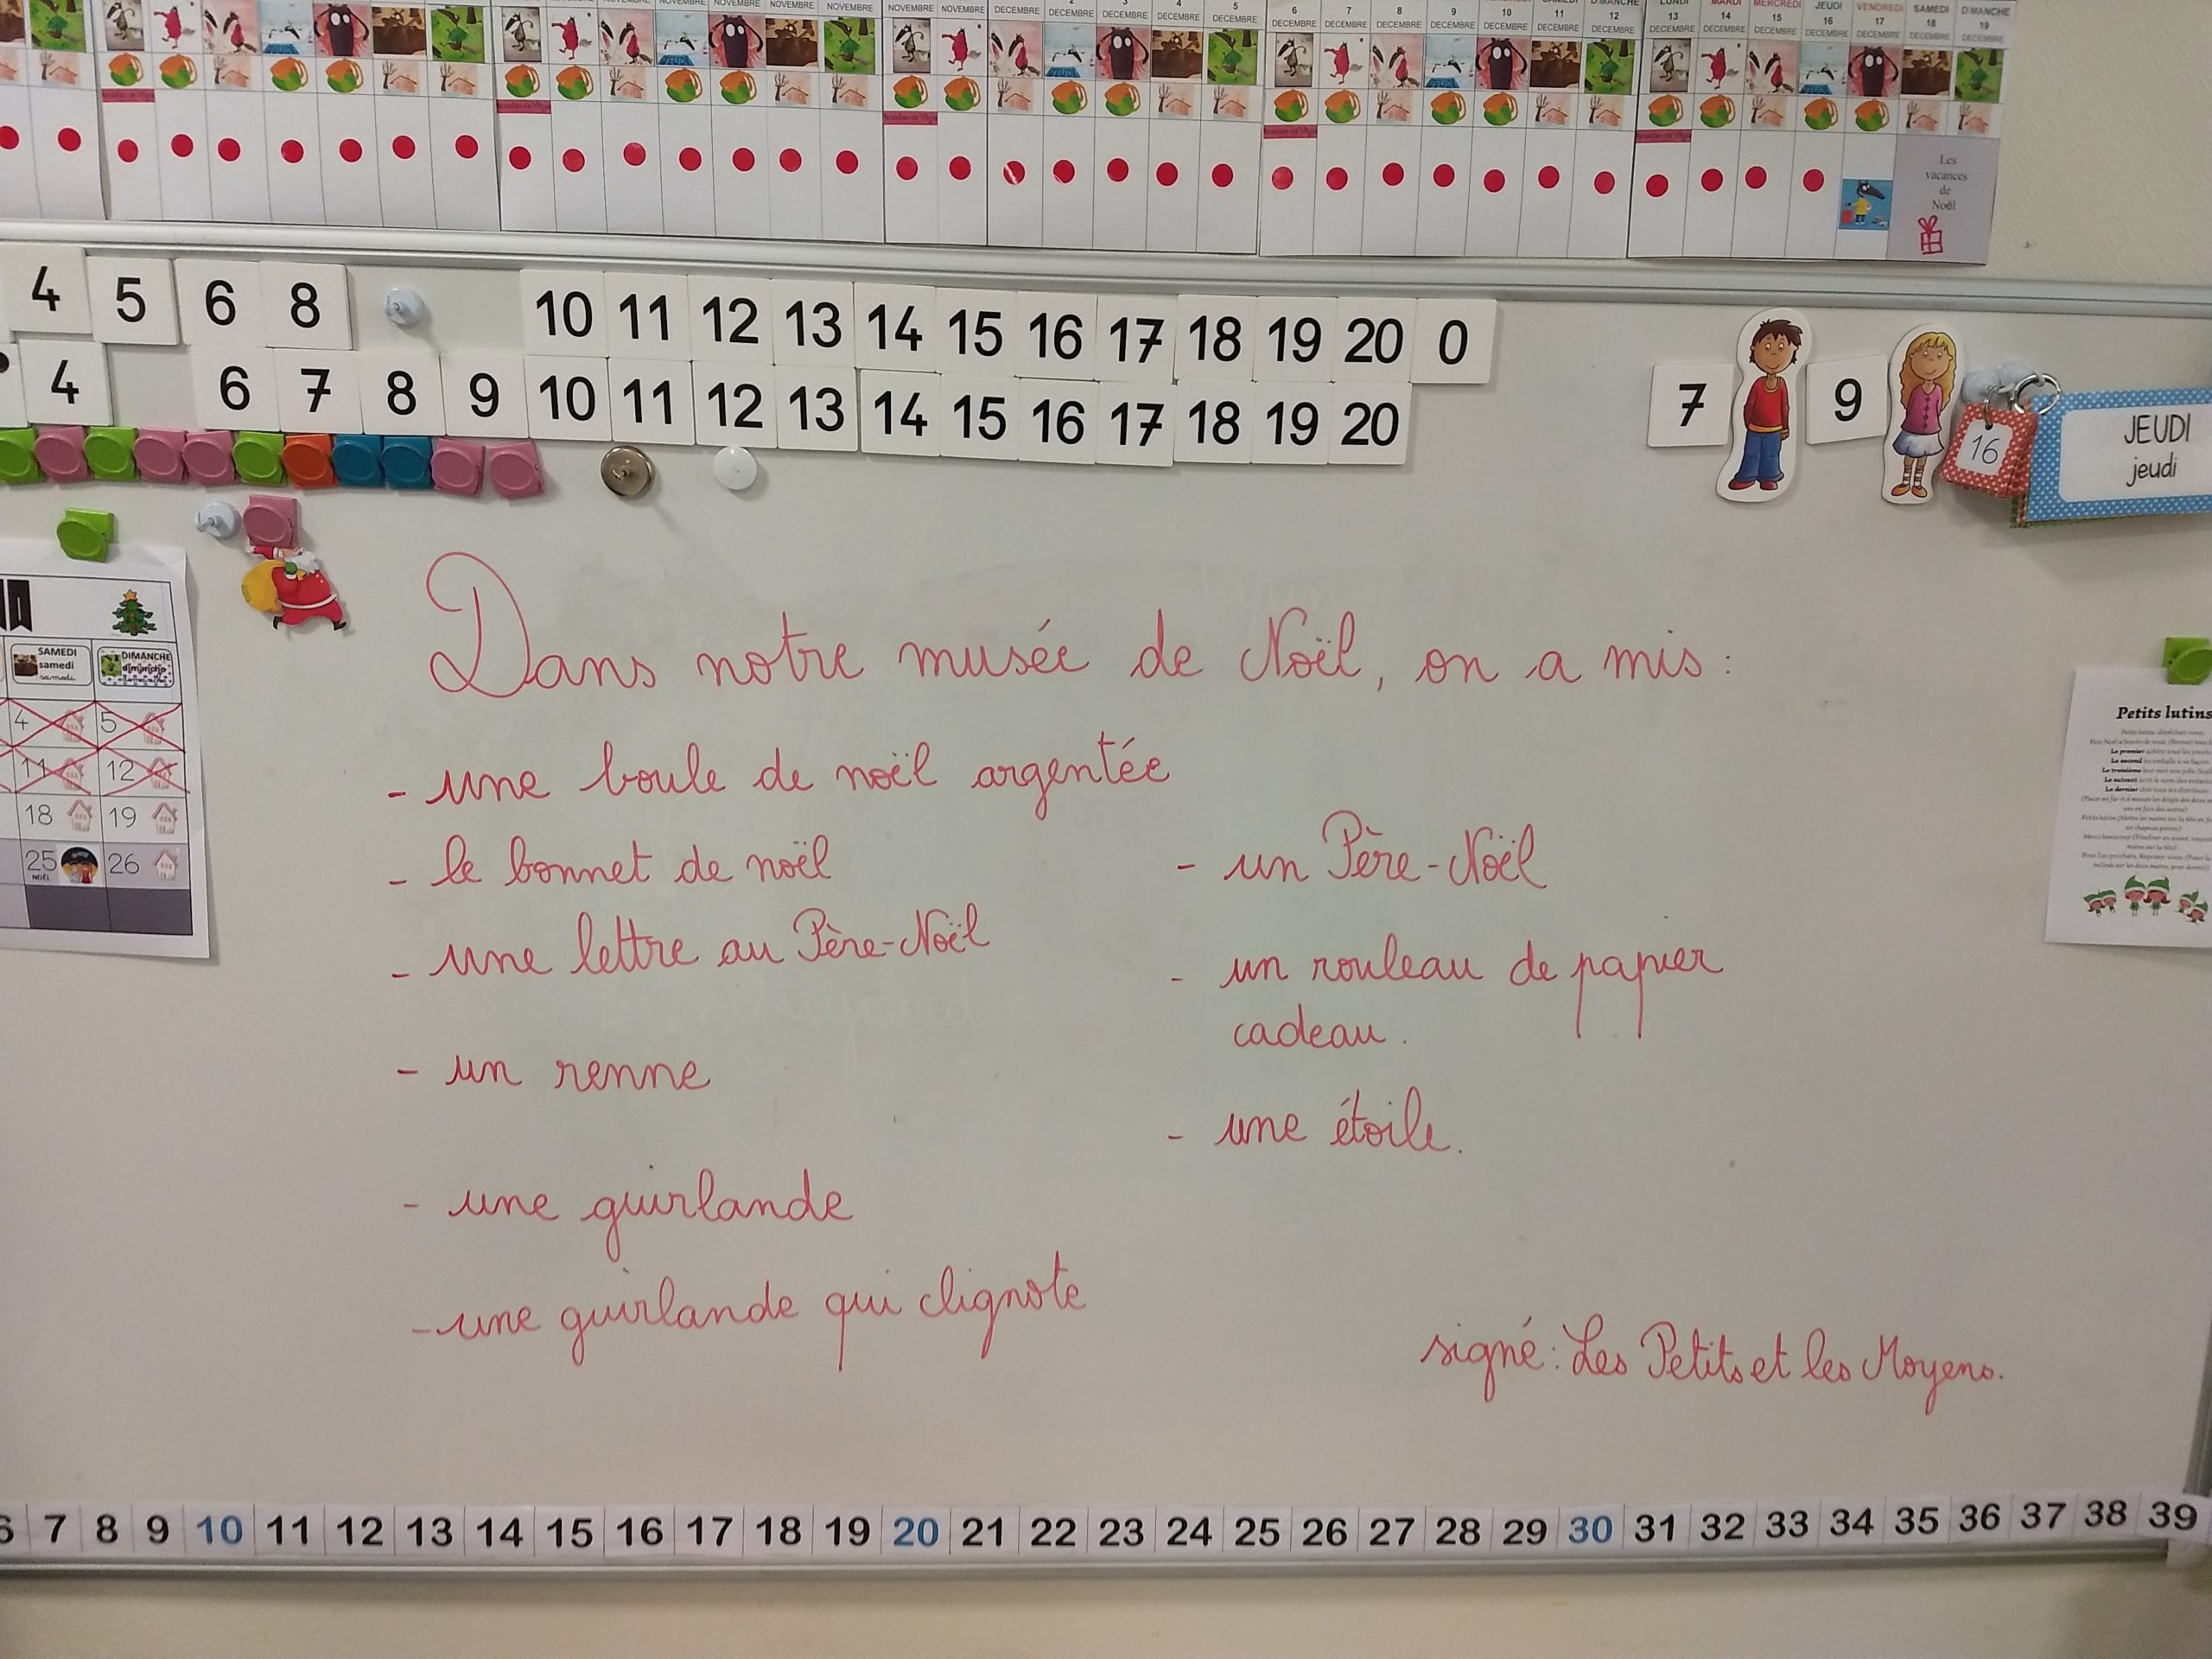 NOVEMBRE NOVEMBRE NOVEMBRE NOVEMBRE NOVEMBRE NOVEMBRE NOVEMBRE DECEMBRE DECEMBRE DECEMBRE DECEMBRE DECEMBRE DECEMBRE DECEMBRE DECEMBRE DECEMBRE DECEMBRE DECEMBRE DECEMBRE DECEMBRE DECEMBRE DECEMBRE DECEMBRE DECEMBRE DECEMBRE DECEMBRE
2 3 4 5 6 7 8 9 10 11 12 13 14 15 16 17 18 19
DIMANCHE LUNDI MARDI MERCREDI JEUDI VENDREDI SAMEDI DIMANCHE
Les
vacances
de
Noël
4 5 6 8 10 11 12 13 14 15 16 17 18 19 20 0
4 6 7 8 9 10 11 12 13 14 15 16 17 18 19 20
7 9 16
JEUDI
jeudi
Dans notre musée de Noël, on a mis :
- une boule de noël argentée
- le bonnet de noël
- une lettre au Père-Noël
- un renne
- une guirlande
- une guirlande qui clignote
- un Père-Noël
- un rouleau de papier
cadeau.
- une étoile.
signé : Les Petits et les Moyens.
SAMEDI DIMANCHE
samedi dimanche
samedi
4 5
11 12
18 19
25 26
NOËL
Petits lutins
Le premier
Le second
Le troisième
Le suivant
Le dernier
6 7 8 9 10 11 12 13 14 15 16 17 18 19 20 21 22 23 24 25 26 27 28 29 30 31 32 33 34 35 36 37 38 39